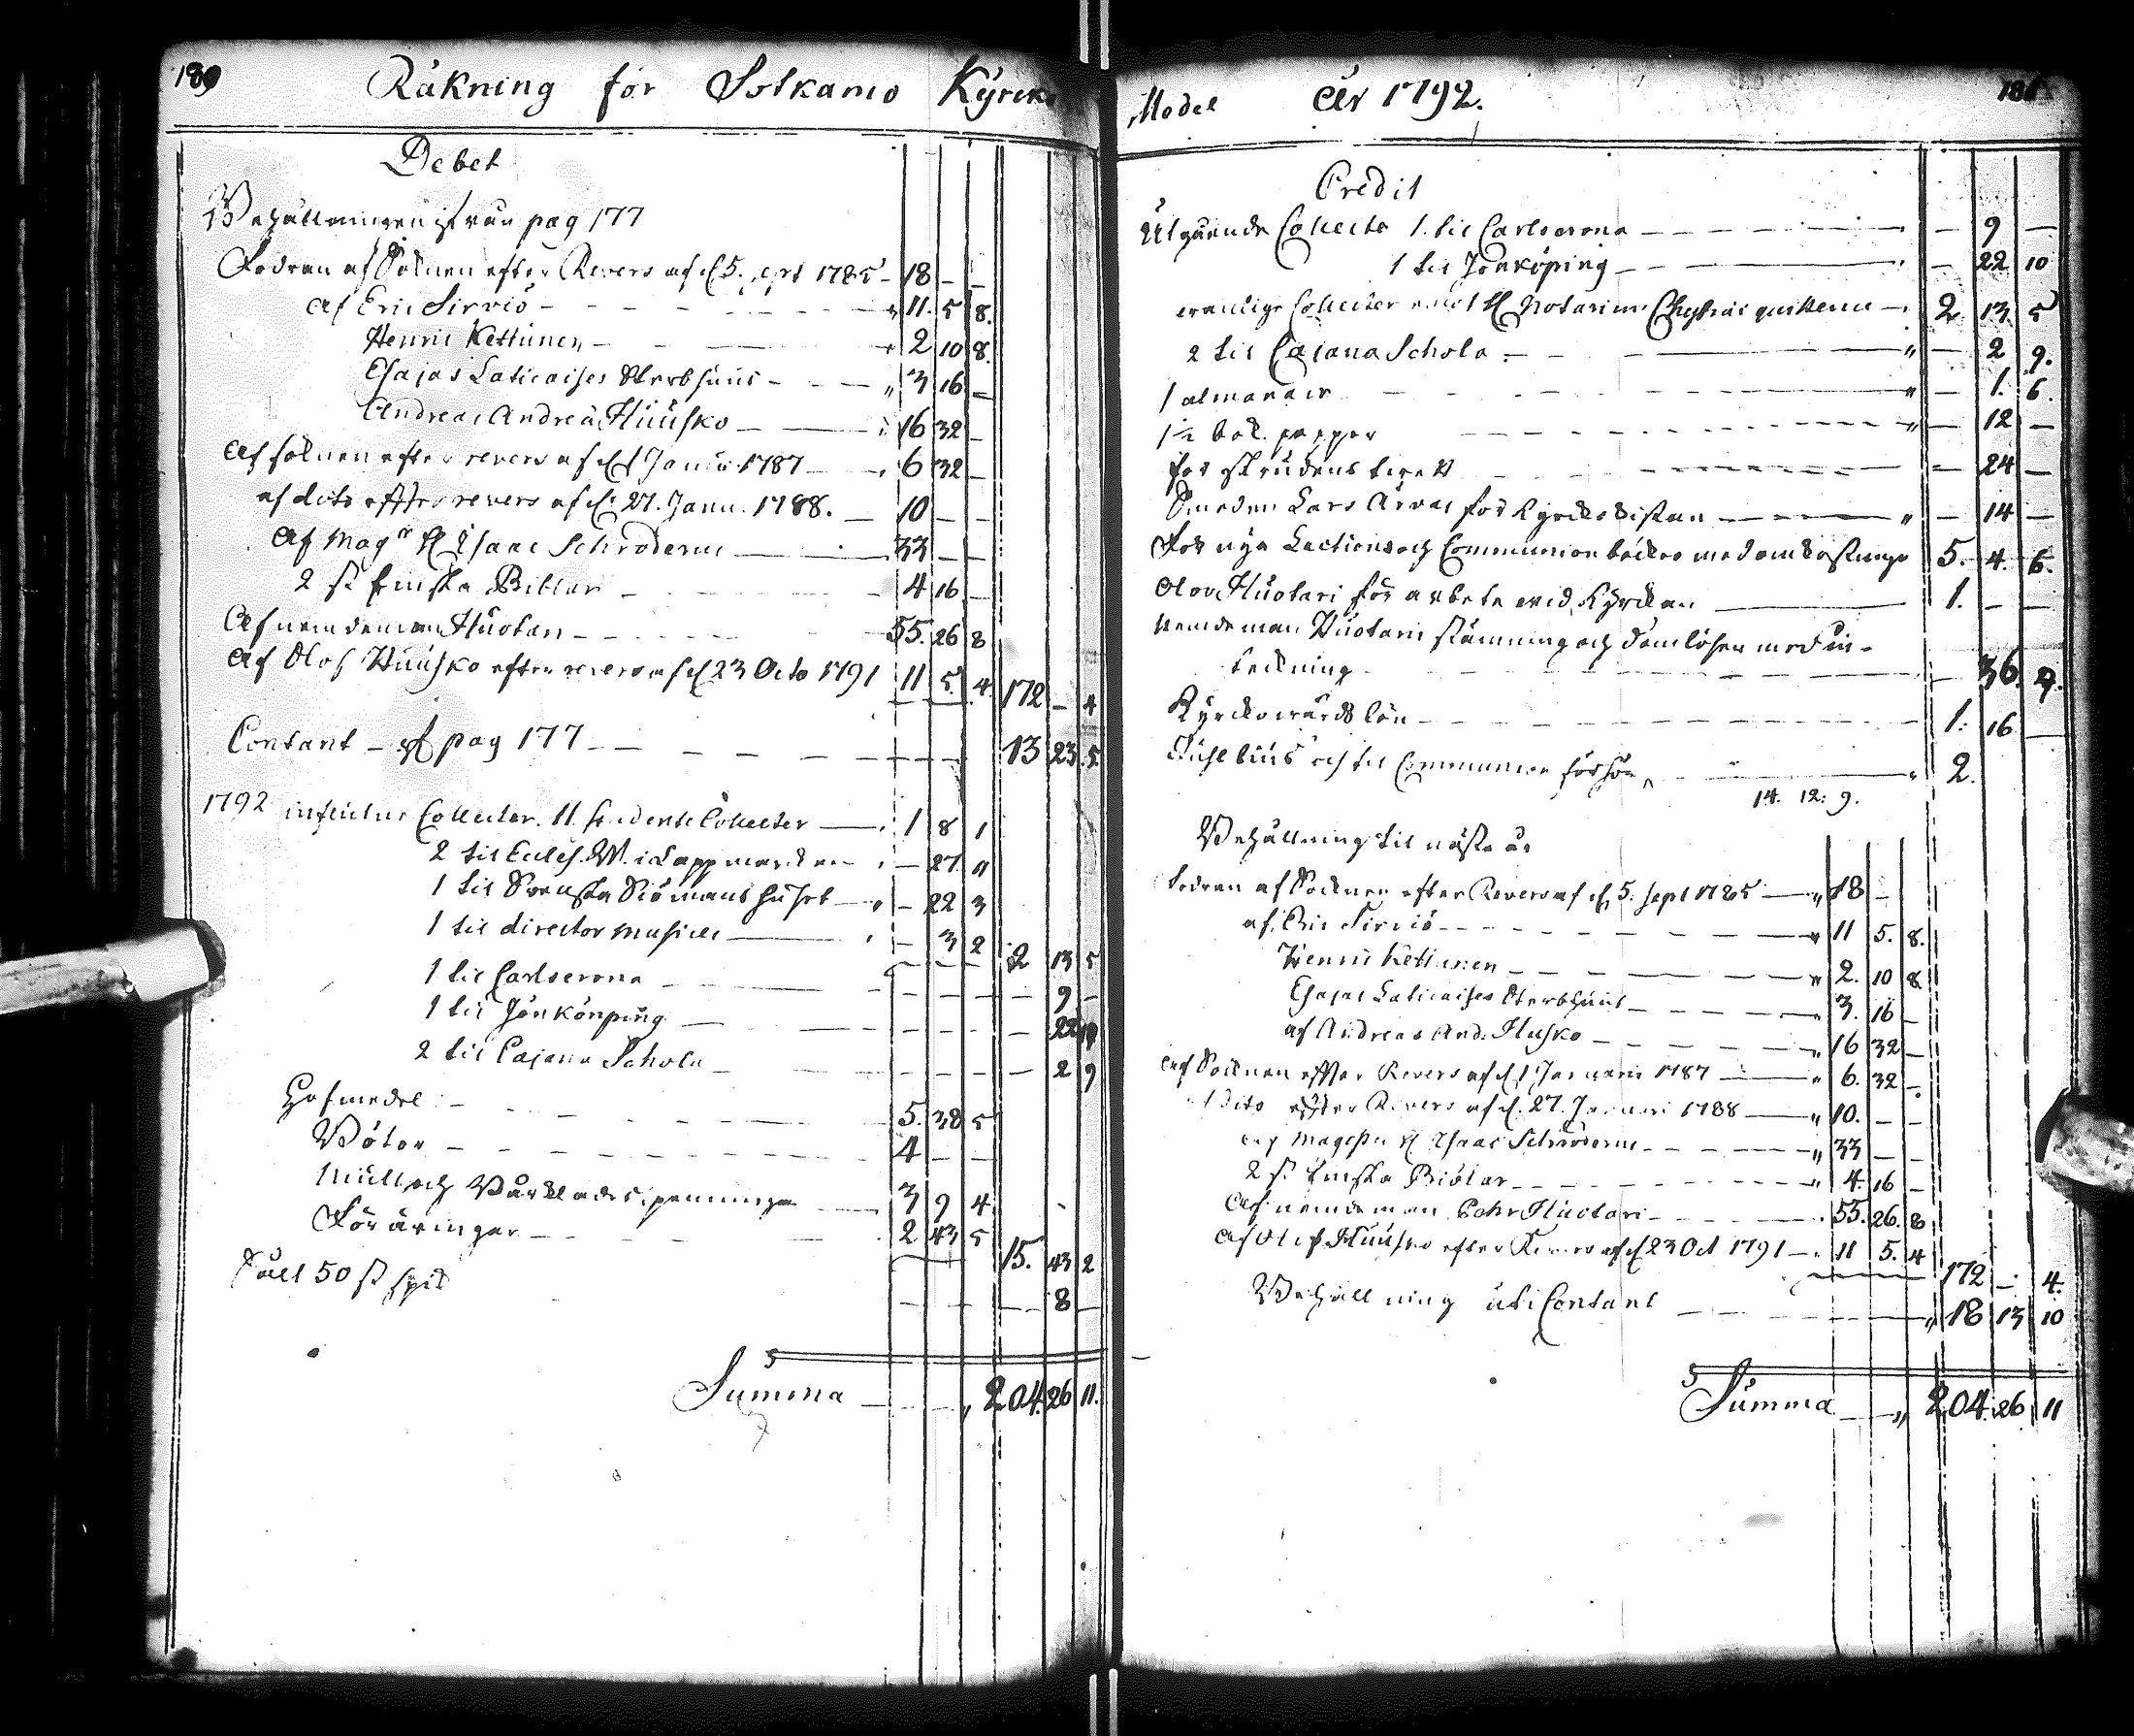 180
Räkning för Sotkamo Kyrcko
Debet
Behållningen ifrån pag 177
Fodran af Soknen efter Revers af d 5. sept 1785 - 18 - -
af Eric Sirviö - 11. 5 8.
Henric Kettunen - 2 10 8.
Esajas Laticaises Sterbhuus - 3 16 -
Andreas Andreæ Huusko - 16 32 -
af soknen efter revers af d 1 Janu. 1787 6 32 -
af dito efter revers af d. 27. Janu. 1788. 10 - -
af Magr H Isaac Schroderus 33 - -
2 st. finska Biblar - 4 16 -
Af nemdeman Huotari - 55. 26 8
af Olof Huusko efter revers af d 23 Octo 1791 11 5. 4 172 - 4
Contant - af pag 177 - 13 23. 5.
1792 influtne Collecter. 11 Collecter 1 8 1
2 til Eccles. W. i Lappmarcken - 27 11
1 til Svenska Siömans huset - 22 3
1 til director musices - 3 2 2 13 5
1 til Carlscrona - 9 -
1 til Jönkönping - 22 10
2 til Cajana Schola - 2 9
Håfmedel - 5. 38 5
Böter - 4 - -
Mull och penningar 3 9 4
Föräringar - 2 43 5 15. 43 2
Sålt 50 st spik 8 -
Summa 204. 26 11.
Model år 1792.
181
Credit
Utgående Collecter 1. til Carlscrona - 9 -
1 til Jonköping - 22 10
Collecter Notarius Chydenii quittence - 2. 13 5
2 til Cajana Schola - 2 9.
1 almanach - 1. 6.
1 1/2 bok. papper - 12 -
för skrudens 24 -
Smeden Lars Ärväs för Kyrckokistan - 14 -
För nya Lections och Communion böcker med omkostningar 5. 4. 6.
Olov Huotari för arbete vid Kyrckan 1. - -
nemdeman Huotaris stämning och domlösen med in-
teckning - 36. 9.
Kyrckowärds lön - 1. 16 -
och til Communion 2.
14. 12: 9.
Behållning til nästa år
fodran af Socknen efter Revers af d 5. sept 1785 18 -
af Eric Sirviö - 11 5. 8.
Henric Kettunen - 2. 10 8
Esajas Laticaises Sterbhuus - 3. 16 -
af Andreas And. Husko - 16 32 -
af Socknen efter Revers af d 1 Januari 1787 6. 32 -
dito efter Revers af d. 27. Januari 1788 10. - -
af Magister H Isaac Schroderus - 33 - -
2 st. finska Biblar - 4. 16 -
af nemdeman Pehr Huotari - 55. 26. 8
af Olof Huusko efter Revers af d 23 Oct 1791 - 11 5. 4
172 - 4.
Behållning uti Contant 18 13 10
Summa 204. 26 11